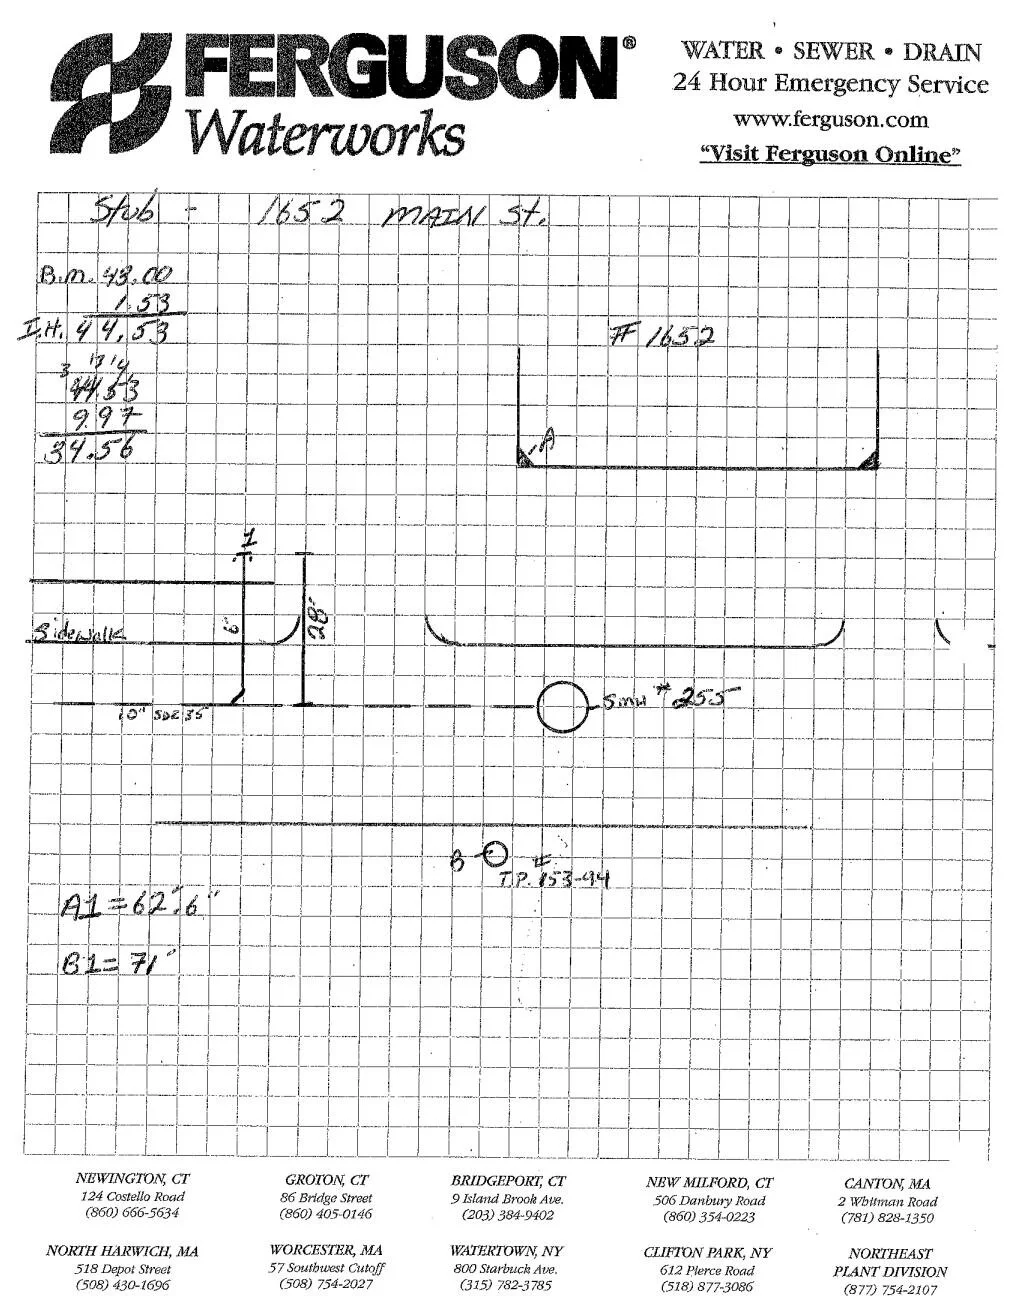 FERGUSON®
Waterworks
WATER • SEWER • DRAIN
24 Hour Emergency Service
www.ferguson.com
"Visit Ferguson Online"
Stub - 1652 MAIN St.
B.M. 43.00
1.53
I.H. 44.53
3 13 14
44.53
9.97
34.56
# 1652
A
1
6"
28'
Sidewalk
10" SDR 35
SMH # 255
B
T.P. # 153-94
A1 = 62'.6"
B1 = 71'
NEWINGTON, CT
124 Costello Road
(860) 666-5634
GROTON, CT
86 Bridge Street
(860) 405-0146
BRIDGEPORT, CT
9 Island Brook Ave.
(203) 384-9402
NEW MILFORD, CT
506 Danbury Road
(860) 354-0223
CANTON, MA
2 Whitman Road
(781) 828-1350
NORTH HARWICH, MA
518 Depot Street
(508) 430-1696
WORCESTER, MA
57 Southwest Cutoff
(508) 754-2027
WATERTOWN, NY
800 Starbuck Ave.
(315) 782-3785
CLIFTON PARK, NY
612 Pierce Road
(518) 877-3086
NORTHEAST
PLANT DIVISION
(877) 754-2107